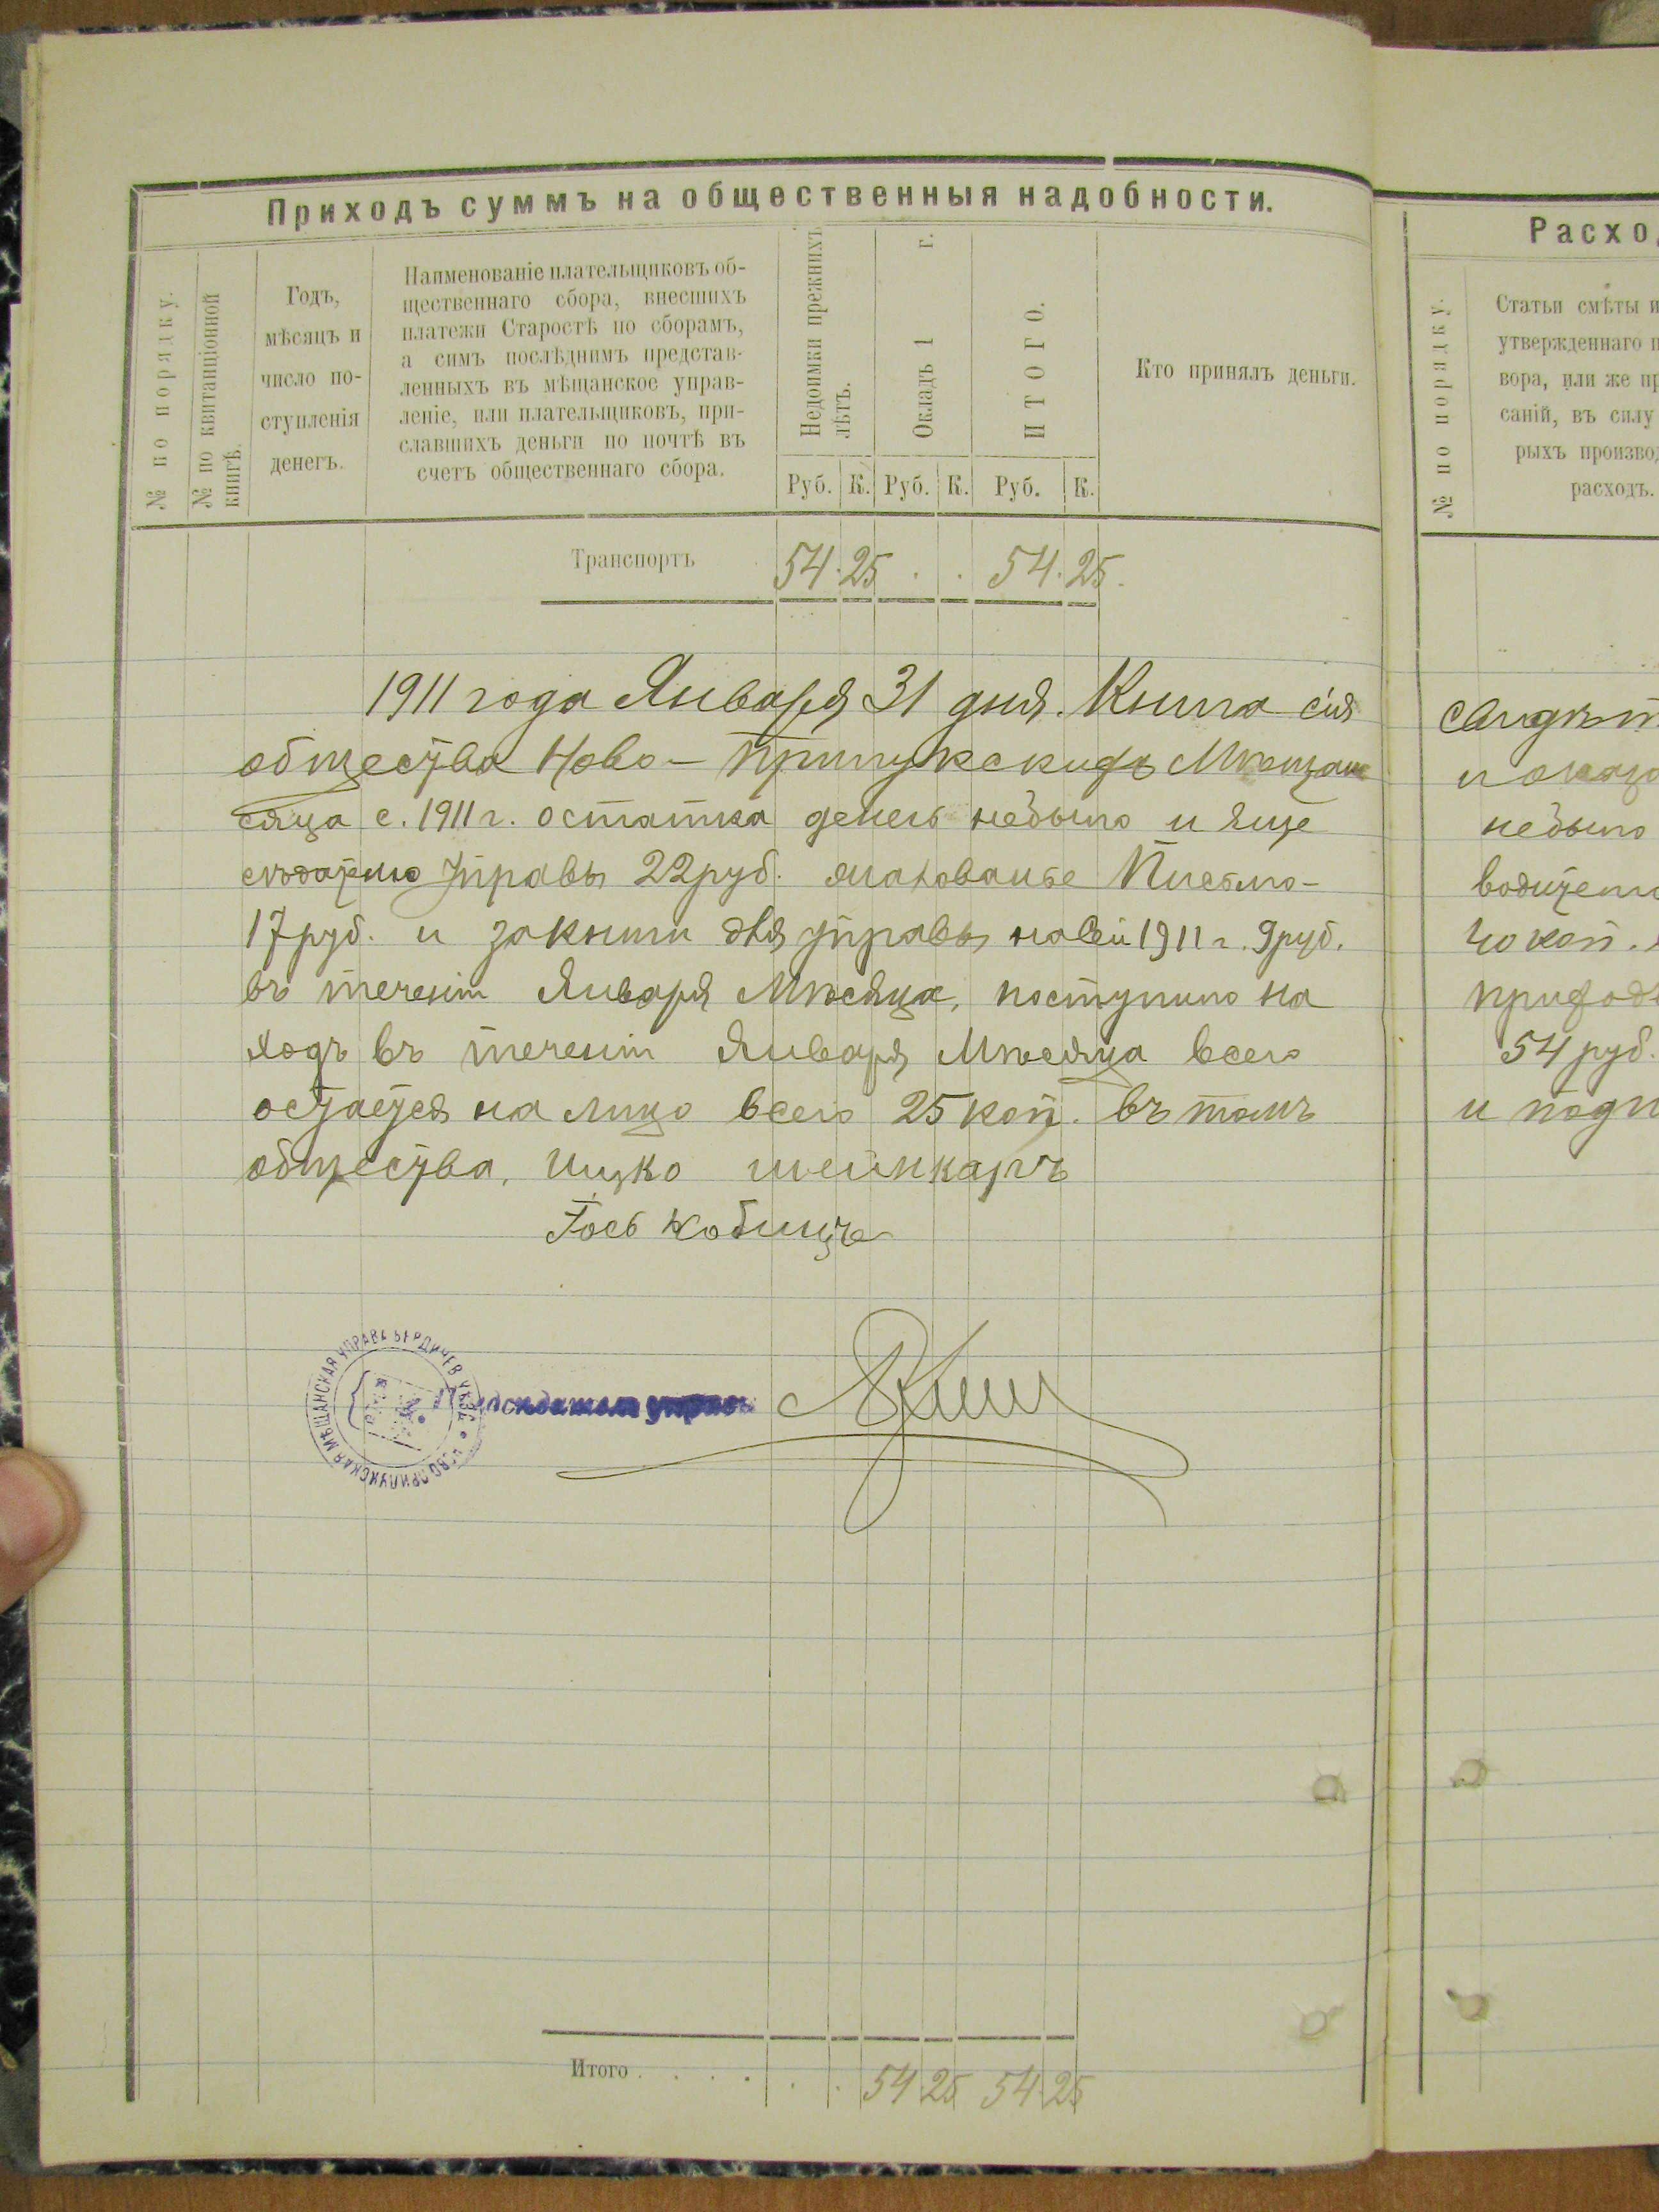 Приходъ суммъ на общественныя надобности.
№ по порядку.
№ по квитанціонной
книгѣ.
Годъ,
мѣсяцъ и
число по-
ступленія
денегъ.
Наименованіе плательщиковъ об-
щественнаго сбора, внесшихъ
платежи Старостѣ по сборамъ,
а симъ послѣднимъ представ-
ленныхъ въ мѣщанское управ-
леніе, или плательщиковъ, при-
славшихъ деньги по почтѣ въ
счетъ общественнаго сбора.
Недоимки прежнихъ
лѣтъ.
Окладъ 1 г.
ИТОГО.
Кто принялъ деньги.
Руб. К. Руб. К. Руб. К.
Транспортъ 54. 25 . . 54. 25.
1911 года Января 31 дня. Книга сія
общества Ново-Прилукскихъ Мѣщан
сяца с. 1911 г. остатка денегъ небыло и
управы 22 руб. жалованье
17 руб. и закниги для управы 1911 г. 9 руб.
въ теченіи Января Мѣсяца, поступило на
ходъ въ теченіи Января Мѣсяца всего
остается на лицо всего 25 коп. въ томъ
общества, Ицко
МѢЩАНСКАЯ УПРАВА БЕРДИЧЕВ УѢЗД НОВО ПРИЛУКСКАЯ
Предсѣдатель управы
Итого . . . . . . 54 25 54 25
Расход
№ по порядку.
Статьи смѣты и
утвержденнаго п
вора, или же пр
саній, въ силу
рыхъ производ
расходъ.
небыло
40 коп.
приходъ
54 руб.